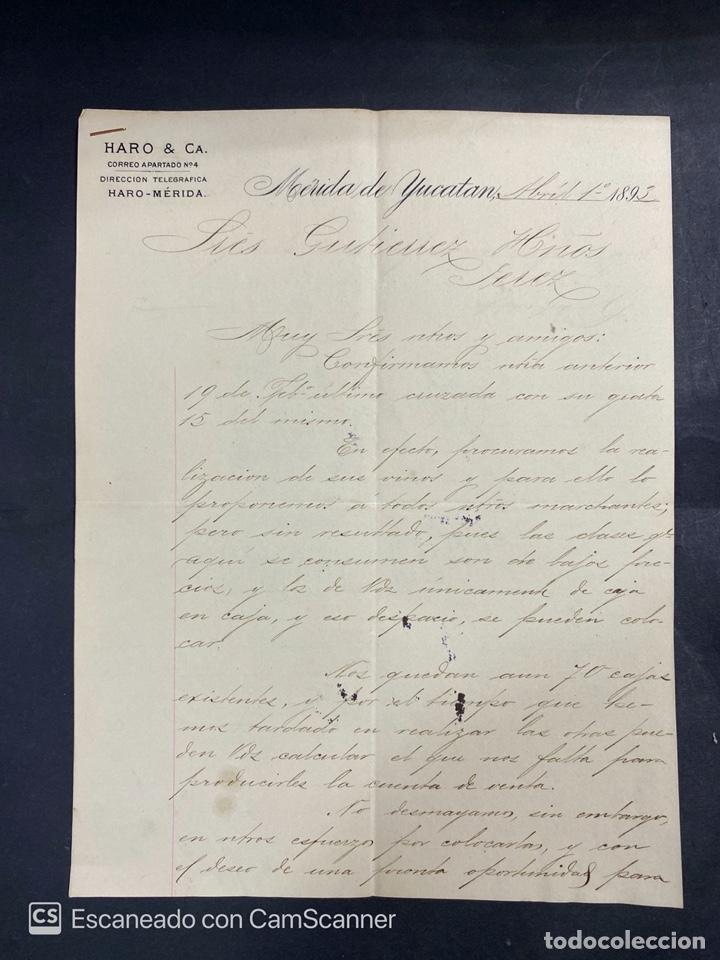 HARO & CA.
CORREO APARTADO Nº4
DIRECCION TELEGRAFICA
HARO-MÉRIDA.
Mérida de Yucatan, Abril 1º 1893
Srés Gutierrez Hños
Jerez
Muy Srés ntros y amigos:
Confirmamos ntra anterior
19 de Febº último cruzada con su grata
15 del mismo.
En efecto, procuramos la rea-
lizacion de sus vinos y para ello lo
proponemos a todos ntros marchantes;
pero sin resultado, pues las clases qe
aquí se consumen son de bajos pre-
cios, y los de Vds únicamente de caja
en caja, y eso despacio, se pueden colo-
car.
Nos quedan aun 70 cajas
existentes, y por el tiempo que he-
mos tardado en realizar las otras pue-
den Vds calcular el que nos falta para
producirles la cuenta de venta.
No desmayamos, sin embargo,
en ntros esfuerzos por colocarlas, y con
el deseo de una pronta oportunidad para
CS Escaneado con CamScanner
todocoleccion